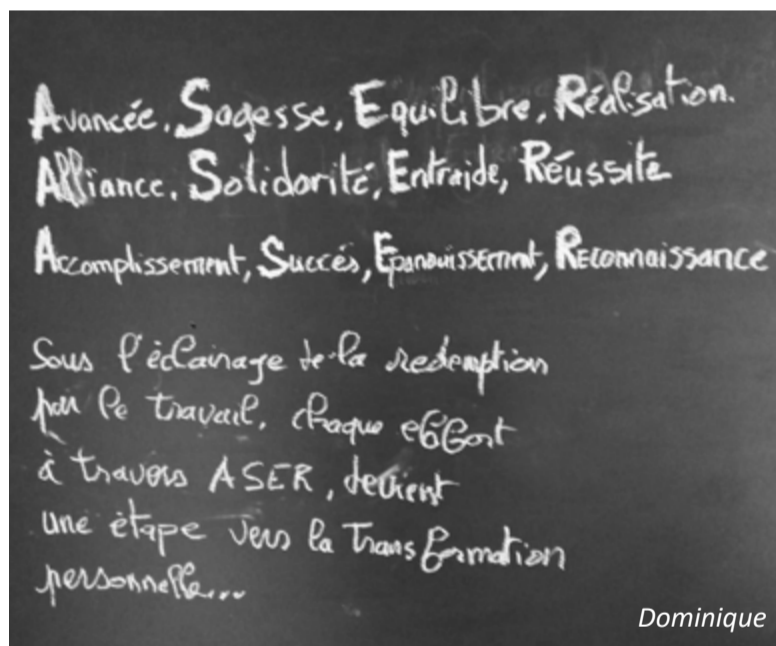 Avancée, Sagesse, Equilibre, Réalisation.
Alliance, Solidarité, Entraide, Réussite
Accomplissement, Succés, Epanouissement, Reconnaissance
Sous l'éclairage de la redemption
par le travail, chaque effort
à travers ASER, devient
une étape vers la Transformation
personnelle...
Dominique